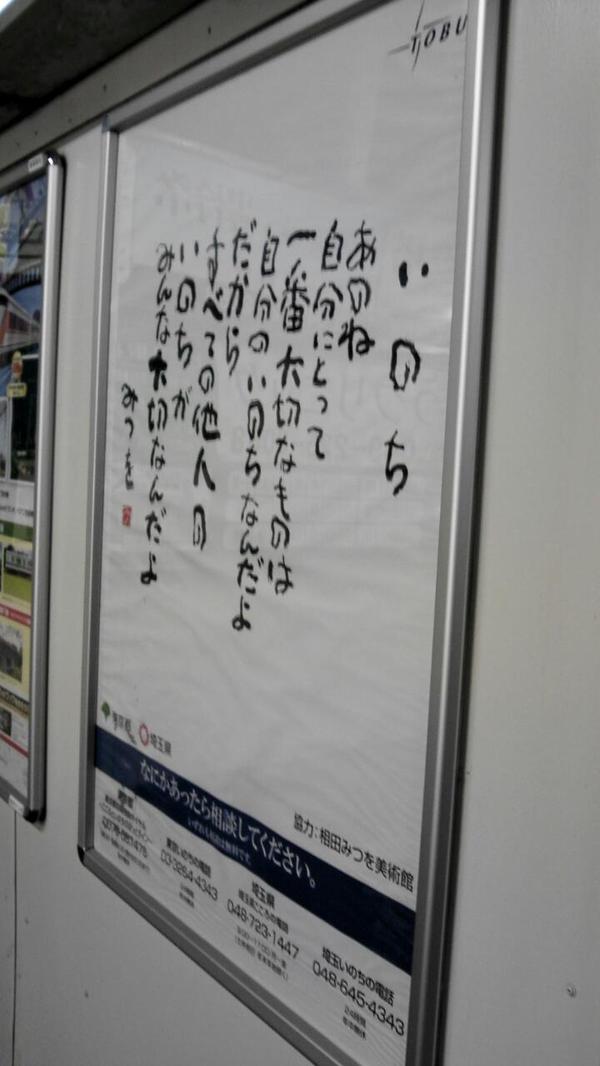 TOBU
いのち
あのね
自分にとって
一番大切なものは
自分のいのちなんだよ
だから
すべての他人の
いのちが
みんな大切なんだよ
みつを
東京都
埼玉県
協力：相田みつを美術館
なにかあったら相談してください。
いずれも相談は無料です。
東京いのちの電話
03-3264-4343
埼玉県
埼玉県こころの電話
048-723-1447
埼玉いのちの電話
048-645-4343
24時間
年中無休